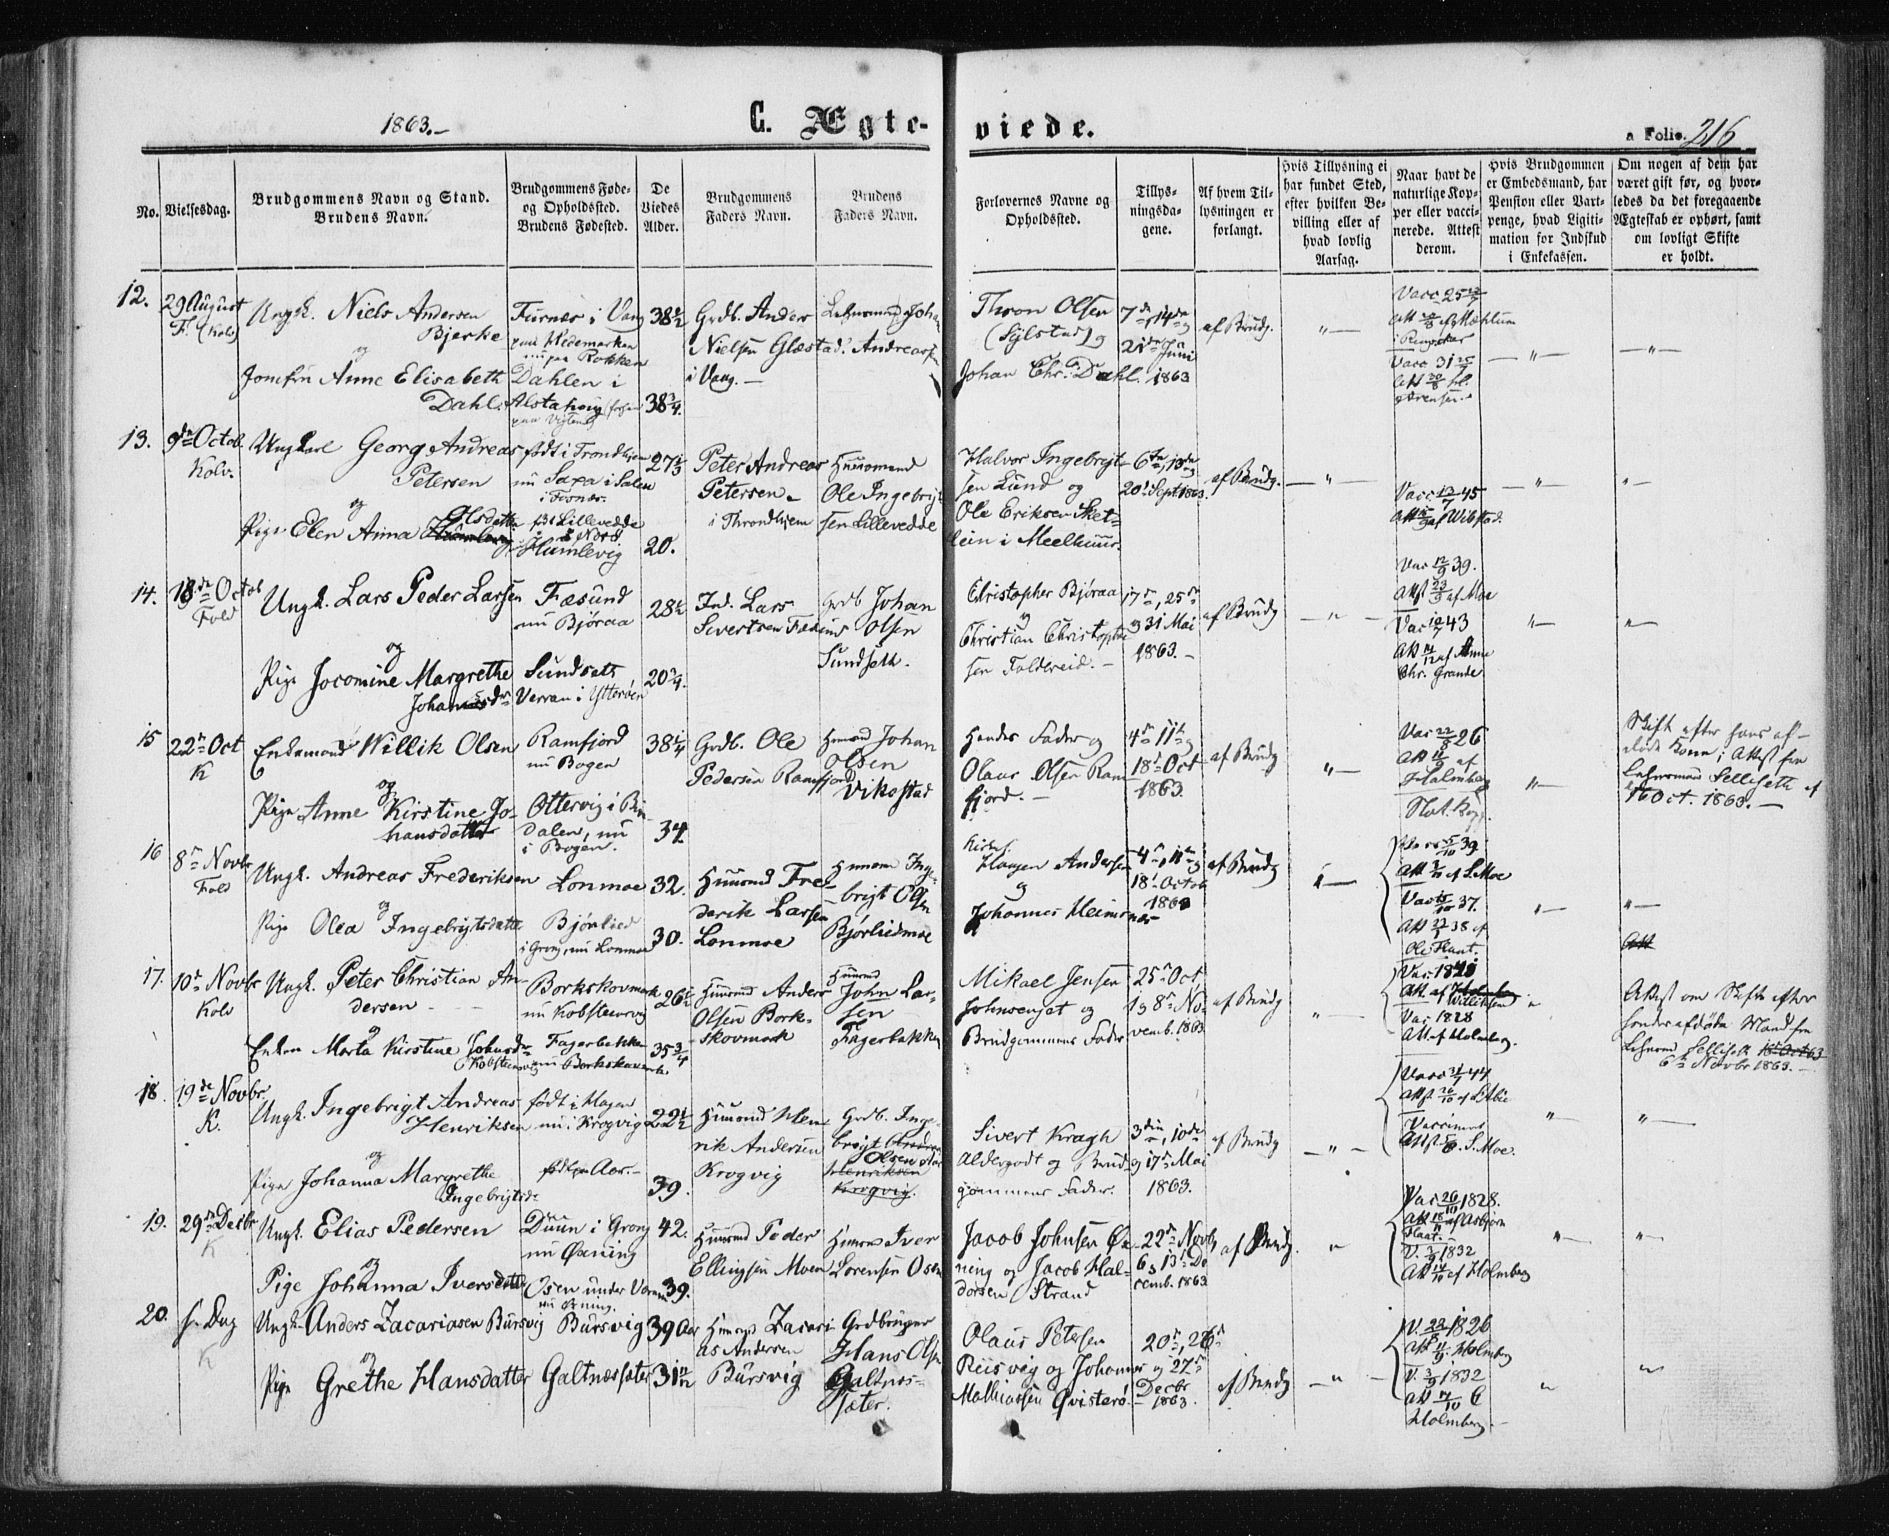 1863.-
C. Ægte-
viede.
a Folio. 216
No.
Vielsesdag.
Brudgommens Navn og Stand.
Brudens Navn.
Brudgommens Føde-
og Opholdssted.
Brudens Fødested.
De
Viedes
Alder.
Brudgommens
Faders Navn.
Brudens
Faders Navn.
Forlovernes Navne og
Opholdssted.
Tillys-
ningsda-
gene.
Af hvem Til-
lysningen er
forlangt.
Hvis Tillysning ei
har fundet Sted,
efter hvilken Be-
villing eller af
hvad lovlig
Aarsag.
Naar havt de
naturlige Kop-
per eller vacci-
nerede. Attest
derom.
Hvis Brudgommen
er Embedsmand, har
Pension eller Vart-
penge, hvad Ligiti-
mation for Indskud
i Enkekassen.
Om nogen af dem har
været gift før, og hvor-
ledes da det foregaaende
Ægteskab er ophørt, samt
om lovligt Skifte
er holdt.
12.
29 August
F. (Kolv)
Ungk. Niels Andersen
Bjerke
og
Jomfru Anne Elisabeth
Dahl.
Furnæs i Vang
paa Hedemarken
nu paa Rokken
Dahlen i
Alstahoug
38 1/2
38 3/4.
Grdb. Ander
Nielsen Glæstad.
i Vang. -
Lehnsmand Joha
Andreas
Thron Olsen
(Sylstad) og
Johan Chr. Dahl.
7de, 14de og
21de Juni
1863
af Brudg.
Vacc 25
Vacc. 31
13.
9de Octob.
Kolv.
Ungkarl Georg Andreas
Petersen
og
Pige Elen Anna Olsdatter
født i Trondhjem
nu Saxa i Salen
i Fosnæs.
Lillevedde
i Nord
Humlevig
27 1/3
20.
Peter Andreas
Petersen.
i Throndhjem
Huusmand
Ole Ingebrigt
sen Lillevedde
Halvor Ingebrigt-
sen Lund og
Ole Eriksen Sket-
lein i Meelhuus.
6te, 13de og
20' Sept. 1863
af Brudg.
Vacc 13/7 45
Att. af Wibstad.
14.
18de Octob
Fold
Ungk. Lars Peder Larsen
og
Pige Jocomine Margrethe
Johansdr
Fæsund
nu Bjøraa
Sundseth
Verran i Ytterøen
28 1/2
20 3/4.
Ind. Lars
Sivertsen Fæsund
Grdb Johan
Olsen
Sundseth.
Christopher Bjøraa
og
Christian Christophe
sen Foldereid. -
17de, 25de
og 31 Mai
1863. -
af Brudg
Vac 12/9 39.
Att 23/9 af Moe
Vac 10/7 43
Att af Anne
Chr. Grande.
15
22de Oct
K
Enkemand Willik Olsen
og
Pige Anne Kirstine Jo-
hansdatter
Ramfjord
nu Bogen
Ottervig i Bin-
dalen, nu
i Bogen.
38 1/4
34.
Grdb. Ole
Pedersen Ramfjord
Huusmd Johan
Olsen
Vikestad
Hendes Fader og
Olaus Olsen Ram
fjord. -
4de 11te og
18de Oct
1863.
af Brudg
Vac 22/8 26
Att af
Holmberg
Nat. Kopp.
Skift efter hans af-
døde Kone i Attest fra
Lehnsmand Sellisæth af
16 Oct. 1863. -
16
8de Novbr
Fold
Ungk. Andreas Frederiksen
og
Pige Olea Ingebrigtsdatte
Lonmoe
Bjørlied
i Grong, nu Lonmoe
32.
30.
Huusmd Fre-
derik Larsen
Lonmoe
Huusm Inge-
brigt Olsen
Bjørliedmoe
Kirkes.
Haagen Andersen
og
Johannes Heimsnæs
4de, 11te og
18' Octob
1863
af Brudg
39.
Att. af S. Moe
37.
38 af
Ole Flaat.
17.
10de Novbr
Kolv
Ungk. Peter Christian An-
dersen
og
Enken Marta Kirstine Johnsdr
Kobsteensvig
Borkskovmark
nu Kobsteensvig
Fagerbakken
nu Borkskovmark
26 1/2
35 3/4
Huusmd Anders
Olsen Bork-
skovmark
Huusmd
John Lar-
sen
Fagerbakken
Mikael Jensen
Johnsensæt og
Brudgommens Fader
25de Oct,
1 og 8de No-
vemb. 1863
af Brudg
Vac. 1841
Att. af
Willichsen
Vac 1828
Att af Holmberg.
Attest om Skifte efter
hendes afdøde Mand fra
Lehnsmd Sellisæth
6te Novbr 1863. -
18
19de Novbr.
K.
Ungk. Ingebrigt Andreas
Henriksen
og
Pige Johanna Margrethe
Ingebrigtsdr
født i Hagen
nu i Krogvig
født paa Aar. -
22 1/2
39.
Huusmd Hen
rik Andersen
Krogvig
Grdb. Inge-
brigt
Olsen Aar
Henriksen
Krogvig.
Sivert Kragh
Aldergodt og Brud-
gommens Fader.
3die, 10de
og 17de Mai
1863.
af Brudg
Vacc 44
Vaccineret
Att. S. Moe.
19.
29de Decbr
K
Ungk. Elias Pedersen
og
Pige Johanna Iversdatte
Duun i Grong
nu Øxning
Osen under Værum
nu Øxning.
42.
39.
Huusmd Peder
Ellingsen Moen
Huusmd Iver
Lorensen Osen
Jacob Johnsen Øx-
ning og Jacob Hal-
dorsen Strand
22de Novb
6 og 13de De
cemb. 1863
af Brudg.
Vac 26/10 1828.
Att af Asbjørn
Flaat.
V. 3/9 1832
Att af Holmberg
20.
s. Dag
K
Ungk. Anders Zacariasen Bursvig
og
Pige Grethe Hansdatter
Bursvig
Galtnæssæter
39 Aar
31
Huusmd Zacari
as Andersen
Bursvig
Grdbruger
Hans Olsen
Galtnæs-
sæter.
Olaus Petersen
Reisvig og Johannes
Mathiassen Qvisterø
20de, 26de
og 27de
Decbr
1863.
af Brudg
V. 1826
Att Holmberg
V. 3/9 1832
Att
Holmberg. -